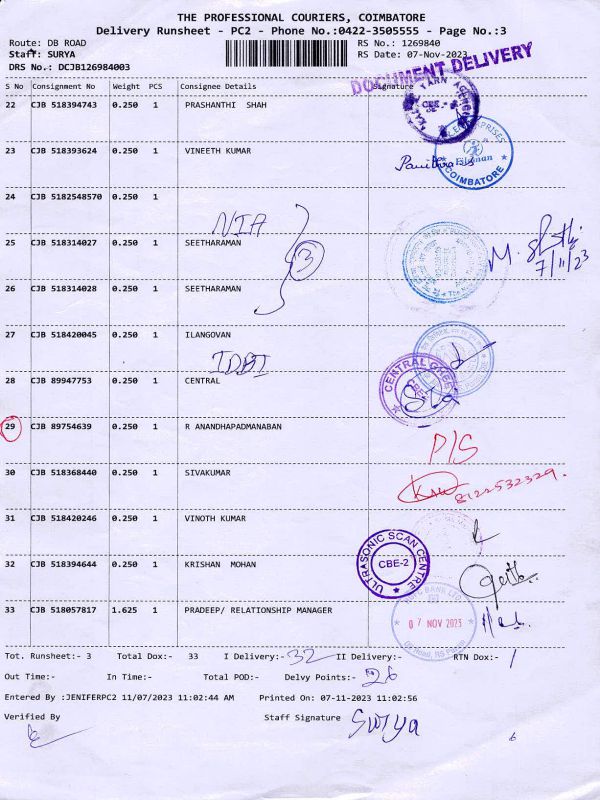 THE PROFESSIONAL COURIERS, COIMBATORE
Delivery Runsheet - PC2 - Phone No.:0422-3505555 - Page No.:3
Route: DB ROAD RS No.: 1269840
Staff: SURYA RS Date: 07-Nov-2023
DRS No.: DCJB126984003
DOCUMENT DELIVERY
S No Consignment No Weight PCS Consignee Details Signature
22 CJB 518394743 0.250 1 PRASHANTHI SHAH
23 CJB 518393624 0.250 1 VINEETH KUMAR
COIMBATORE
24 CJB 5182548570 0.250 1
NIA
25 CJB 518314027 0.250 1 SEETHARAMAN
3
7/11/23
26 CJB 518314028 0.250 1 SEETHARAMAN
27 CJB 518420045 0.250 1 ILANGOVAN
IDBI
28 CJB 89947753 0.250 1 CENTRAL
29 CJB 89754639 0.250 1 R ANANDHAPADMANABAN
D/S
30 CJB 518368440 0.250 1 SIVAKUMAR
8122532329.
31 CJB 518420246 0.250 1 VINOTH KUMAR
ULTRASONIC SCAN CENTRE
CBE-2
32 CJB 518394644 0.250 1 KRISHAN MOHAN
33 CJB 518057817 1.625 1 PRADEEP/ RELATIONSHIP MANAGER
07 NOV 2023
Tot. Runsheet:- 3 Total Dox:- 33 I Delivery:- 32 II Delivery:- RTN Dox:- 1
Out Time:- In Time:- Total POD:- Delvy Points:- 26
Entered By :JENIFERPC2 11/07/2023 11:02:44 AM Printed On: 07-11-2023 11:02:56
Verified By Staff Signature Surya